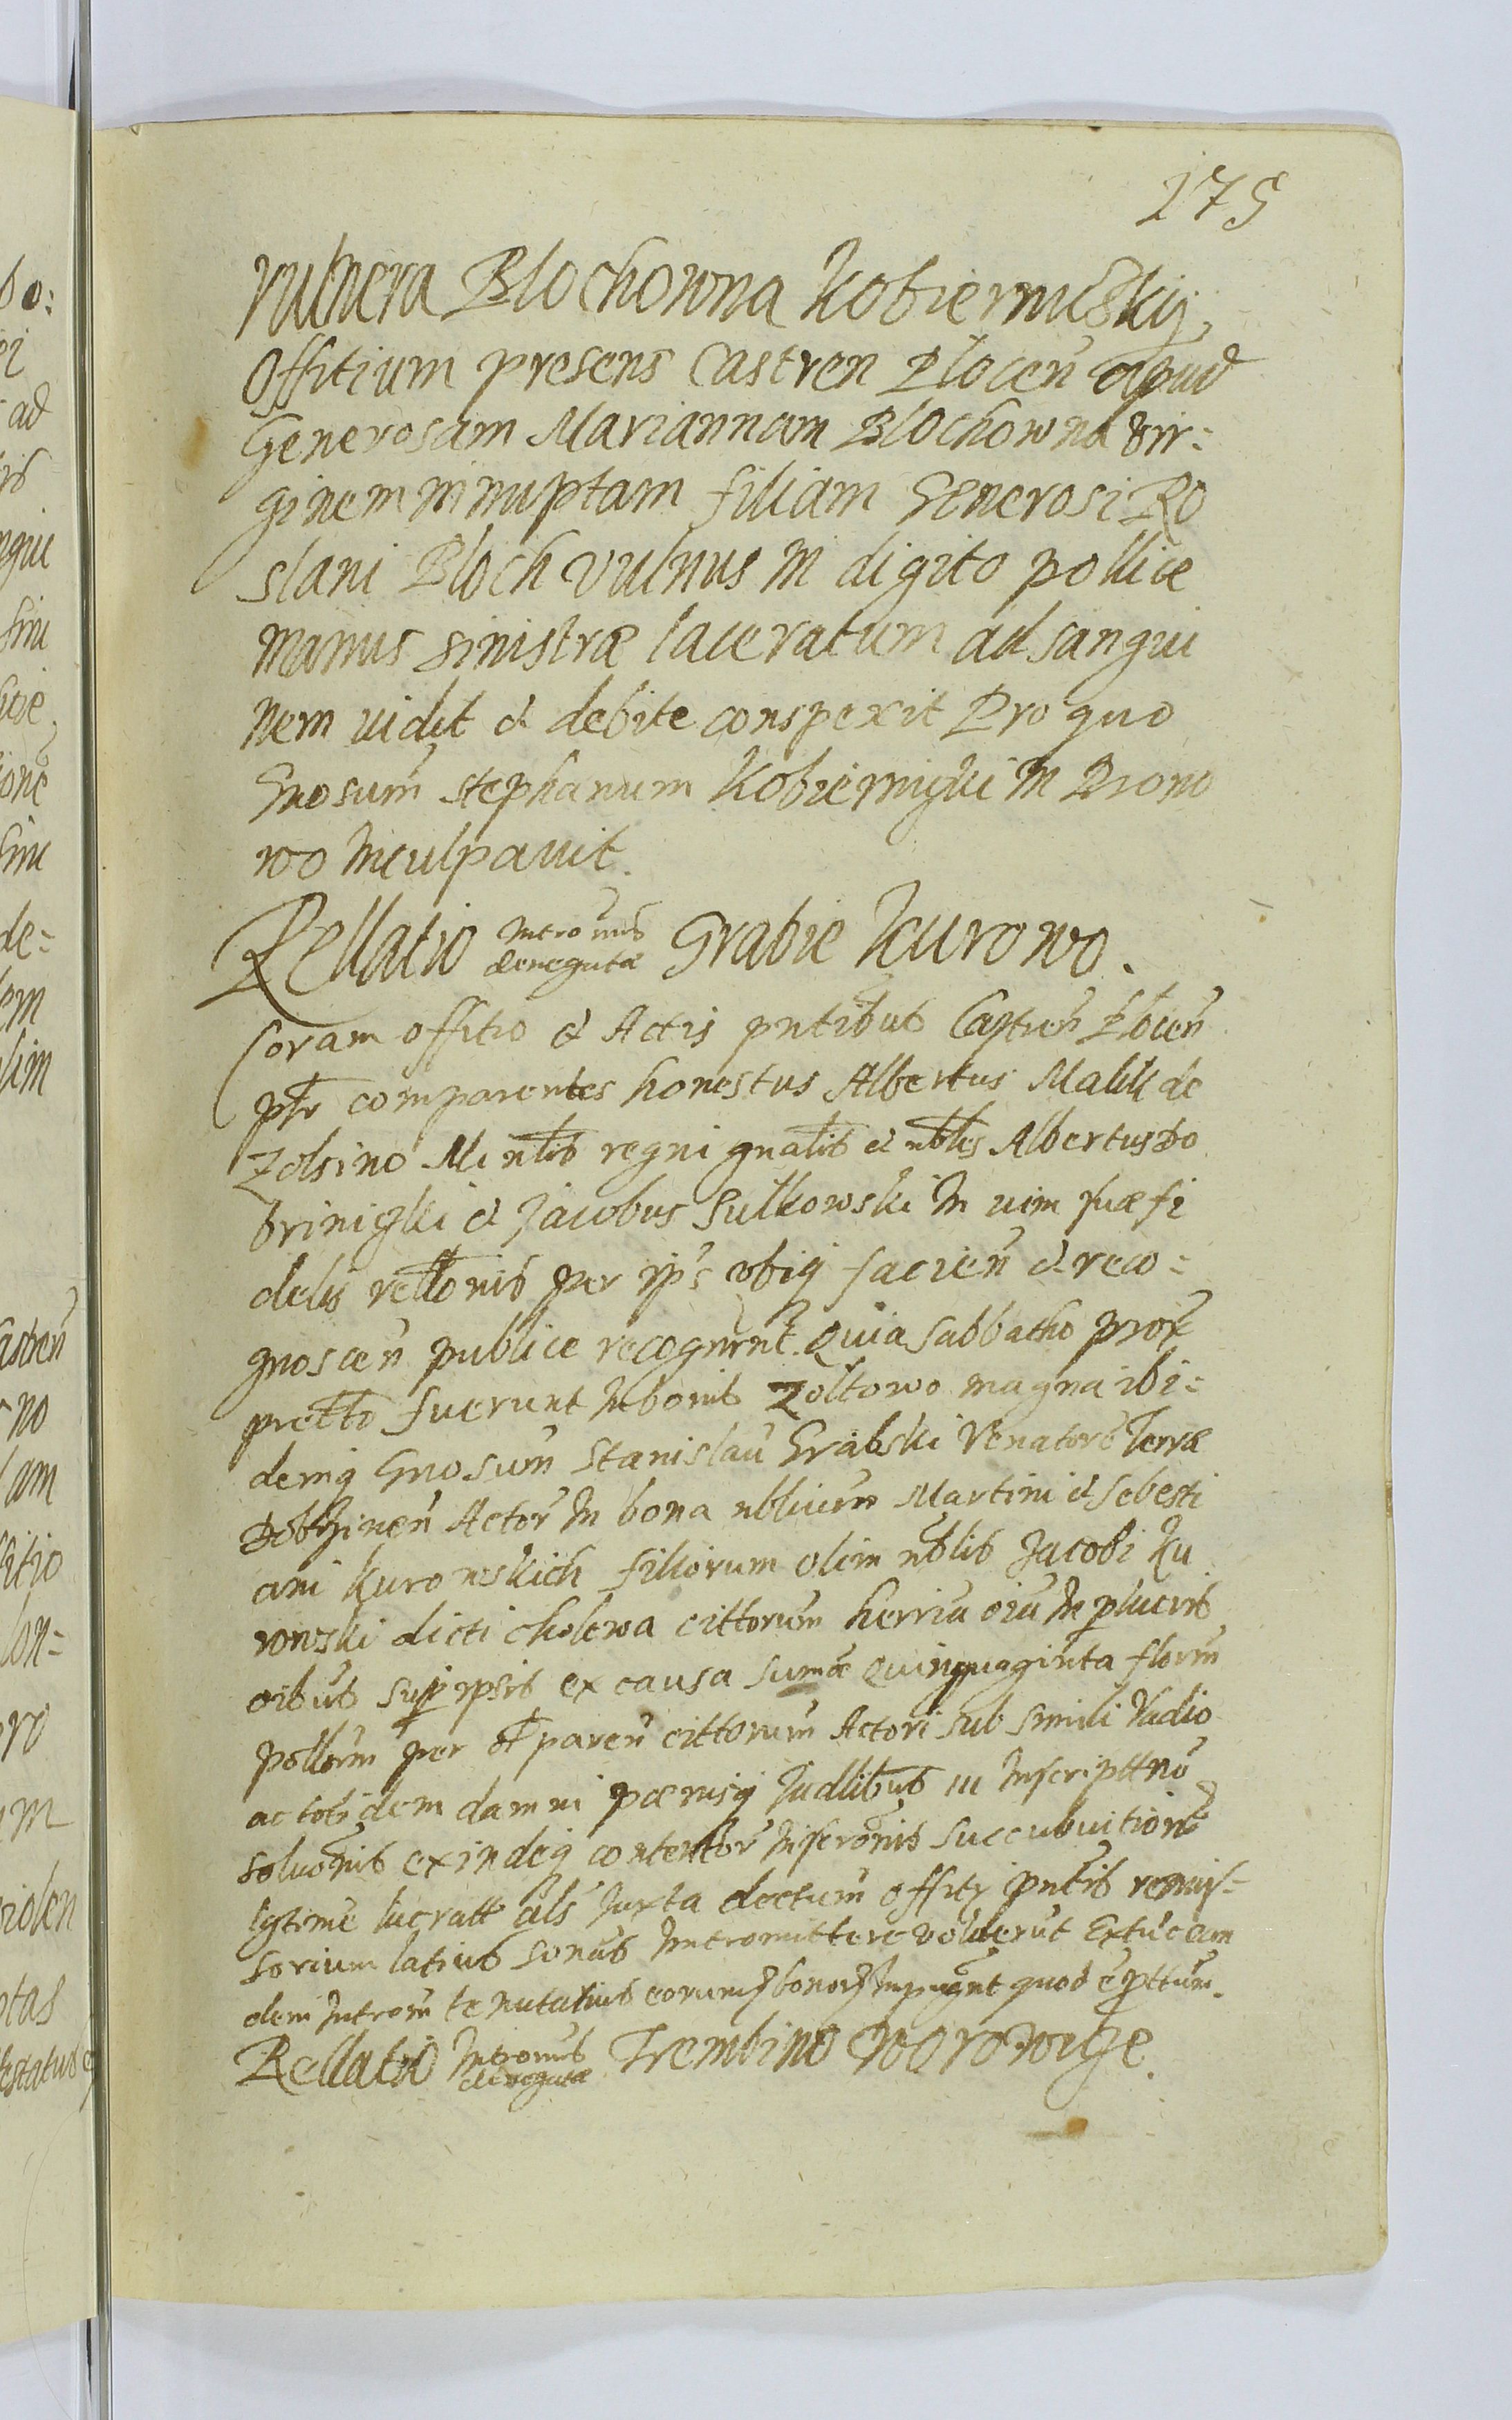 175
Vulnera Blochowna Kobiernickij
Offitium presens Castren Plocen apud
Generosam Mariannam Blochowna vir=
ginem innuptam filiam Generosi Ro
slani Bloch vulnus in digito pollice
manus sinistræ laceratum ad sangui
nem vidit et debite conspexit Pro quo
Gnosum Stephanum Kobiernigki in Brono
wo inculpavit.
Rellatio intromis denegatæ Grabie Kurowo.
Coram offitio et Actis pntibus Castren Plocen
psr comparentes honestus Albertus Malik de
Zolsino Mintlis regni gnalis et nbles Albertus Do
brinigki et Jacobus Sulkowski in vim suæ fi
delis rellonis per ips ubiq facien et reco=
gnoscen publice recognrnt. Quia Sabbatho prox
pretto fuerunt in bonis Zoltowo magna ibi=
demq Gnosum Stanislau Grabski Venatore Terræ
Dobrzinen Actor in bona nblium Martini et Sebesti
ani Kurowskich filiorum olim nblis Jacobi Ku
rowski dicti cholewa cittorum
oibus sup ipsis ex causa sumæ quinquaginta florm
pollum per paren cittorum Actori sub simili Vadio
ac totidem damni pœnisq Judlibus in inscripttno
exindeq contentor inscronis succubuitione
lgtime lucratt als Juxta dectum offity pntis remis=
sorium latius sonus intromittere voluerut Extuc eam
dem introm tenutarius eorumq bonor quod e pttum.
Rellatio intromis denegatæ Trembino Worowice.